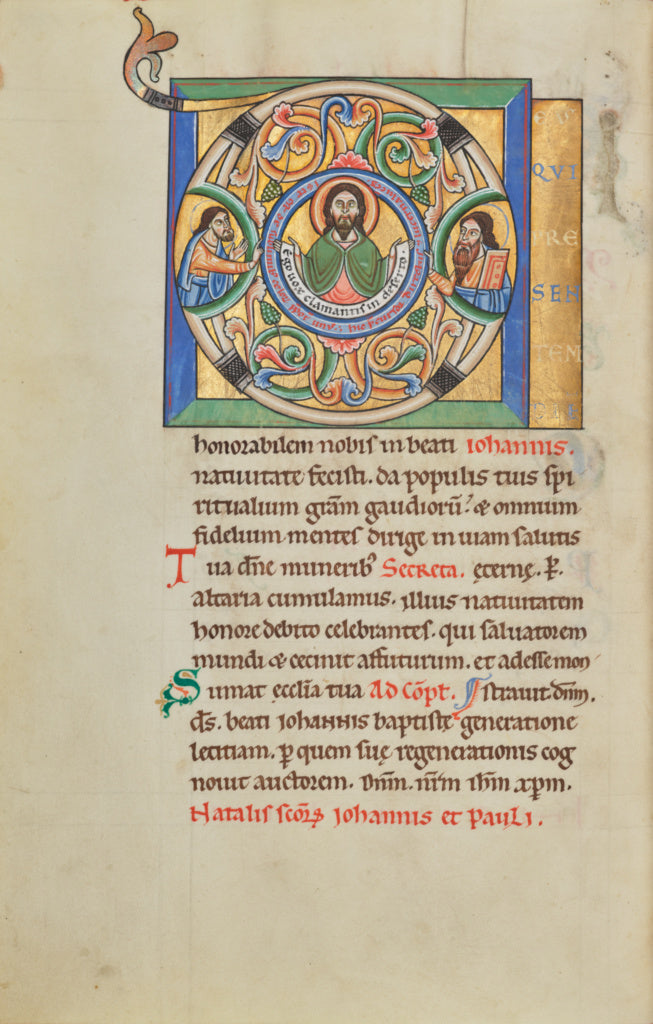 QUI
PRE
SEN
TEM
DIE
Ego vox clamantis in deserto.
honorabilem nobis in beati iohannis.
natiuitate fecisti. da populis tuis spi
ritualium gram̄ gaudiorū. & omnium
fidelium mentes dirige in uiam salutis
Tua dn̄e munerib⁹ Secreta. ęternę. P.
altaria cumulamus. illius natiuitatem
honore debito celebrantes. qui saluatorem
mundi & cecinit affuturum. et adesse mon
Sumat ecclīa tua Ad Cōpt. strauit. dnm̄.
ds̄. beati iohannis baptistę generatione
letitiam. p quem suę regenerationis cog
nouit auctorem. dnm̄. nr̄m ihm̄ xpm̄.
Natalis scōꝝ iohannis et pauli.